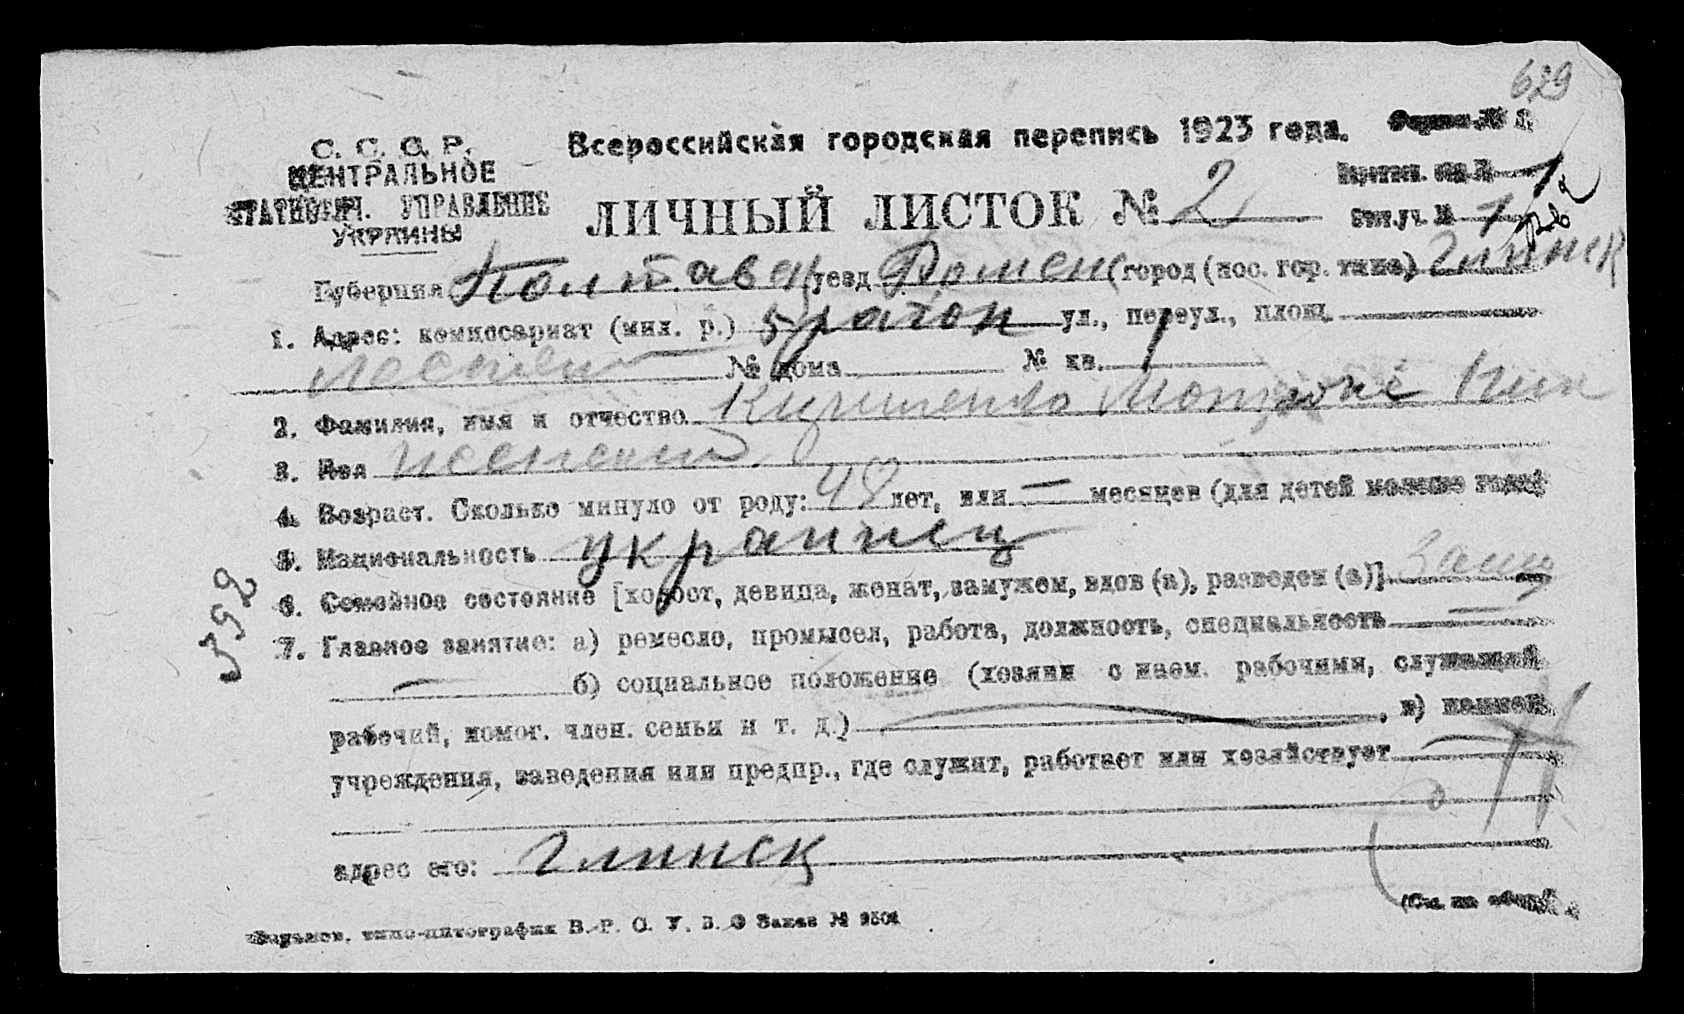 629
С. С. С. Р.
ЦЕНТРАЛЬНОЕ
СТАТИСТИЧ. УПРАВЛЕНИЕ
УКРАИНЫ
Всероссийская городская перепись 1923 года.
ЛИЧНЫЙ ЛИСТОК № 2
Форма № 2.
1
Стат. уч. № 1
Губерния Полтава уезд Ромен город (пос. гор. типа) Глинск
1. Адрес: комиссариат (мил. р.) 5 район ул., переул., площ.
№ дома № кв.
2. Фамилия, имя и отчество
3. Пол женский
4. Возраст. Сколько минуло от роду: 48 лет, или — месяцев (для детей моложе года)
5. Национальность украинец
6. Семейное состояние [холост, девица, женат, замужем, вдов (а), разведен (а)] Зам
7. Главное занятие: а) ремесло, промысел, работа, должность, специальность —
— б) социальное положение (хозяин с наем. рабочими, служащий
рабочий, помог. член. семьи и т. д.) — , в) наимен.
учреждения, заведения или предпр., где служит, работает или хозяйствует —
адрес его: Глинск
(См. на обор
Харьков. типо-литография В. Р. С. У. В. О Заказ №
392